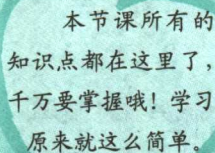 本节课所有的
知识点都在这里了，
千万要掌握哦！学习
原来就这么简单。